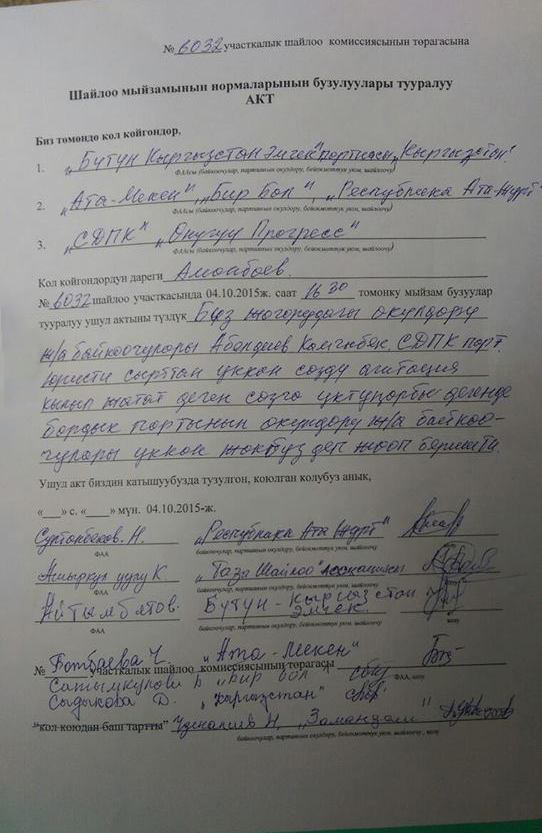 № 6032 участкалык шайлоо комиссиясынын төрагасына
Шайлоо мыйзамынын нормаларынын бузулуулары тууралуу
АКТ
Биз төмөндө кол койгондор,
1. „Бүтүн Кыргызстан Эмгек" партиясы „Кыргызстан"
ФААсы (байкоочулар, партиянын өкүлдөрү, бейөкмөттүк уюм, шайлоочу)
2. „Ата-Мекен" „Бир Бол", „Республика Ата-Журт"
ФААсы (байкоочулар, партиянын өкүлдөрү, бейөкмөттүк уюм, шайлоочу)
3. „СДПК" „Онугуу Прогресс"
ФААсы (байкоочулар, партиянын өкүлдөрү, бейөкмөттүк уюм, шайлоочу)
Кол койгондордун дареги
№ 6032 шайлоо участкасында 04.10.2015ж. саат 16 30 томонку мыйзам бузуулар
тууралуу ушул актыны түздүк Биз жогорудагы окулдору
ж/а байкоочулары СДПК парт.
юристи сырттан уккан созду агитация
кылып жатат деген созго уктунузбу дегенде
бардык партиянын окулдору ж/а байкоо-
чулары уккан жокпуз деп жооп беришти.
Ушул акт биздин катышуубузда түзүлгөн, коюлган колубуз анык,
«___» с. «____» мүн. 04.10.2015-ж.
„Республика Ата Журт"
ФАА байкоочулар, партиянын өкүлдөрү, бейөкмөттүк уюм, шайлоочу
Ашыркул уулу К „Таза Шайлоо" ассоциациясы
ФАА байкоочулар, партиянын өкүлдөрү, бейөкмөттүк уюм, шайлоочу
Айтымбетов. Бүтүн-Кыргызстан
Эмгек.
ФАА байкоочулар, партиянын өкүлдөрү, бейөкмөттүк уюм, шайлоочу колу
Ботбаева Ч. „Ата-Мекен"
№ участкалык шайлоо комиссиясынын төрагасы
ФАА, колу
Сатымкулова „Бир бол"
Сыдыкова Д. „Кыргызстан"
"кол коюдан баш тартты" Н, „Замандаш"
байкоочулар, партиянын өкүлдөрү, бейөкмөттүк уюм, шайлоочу, колу